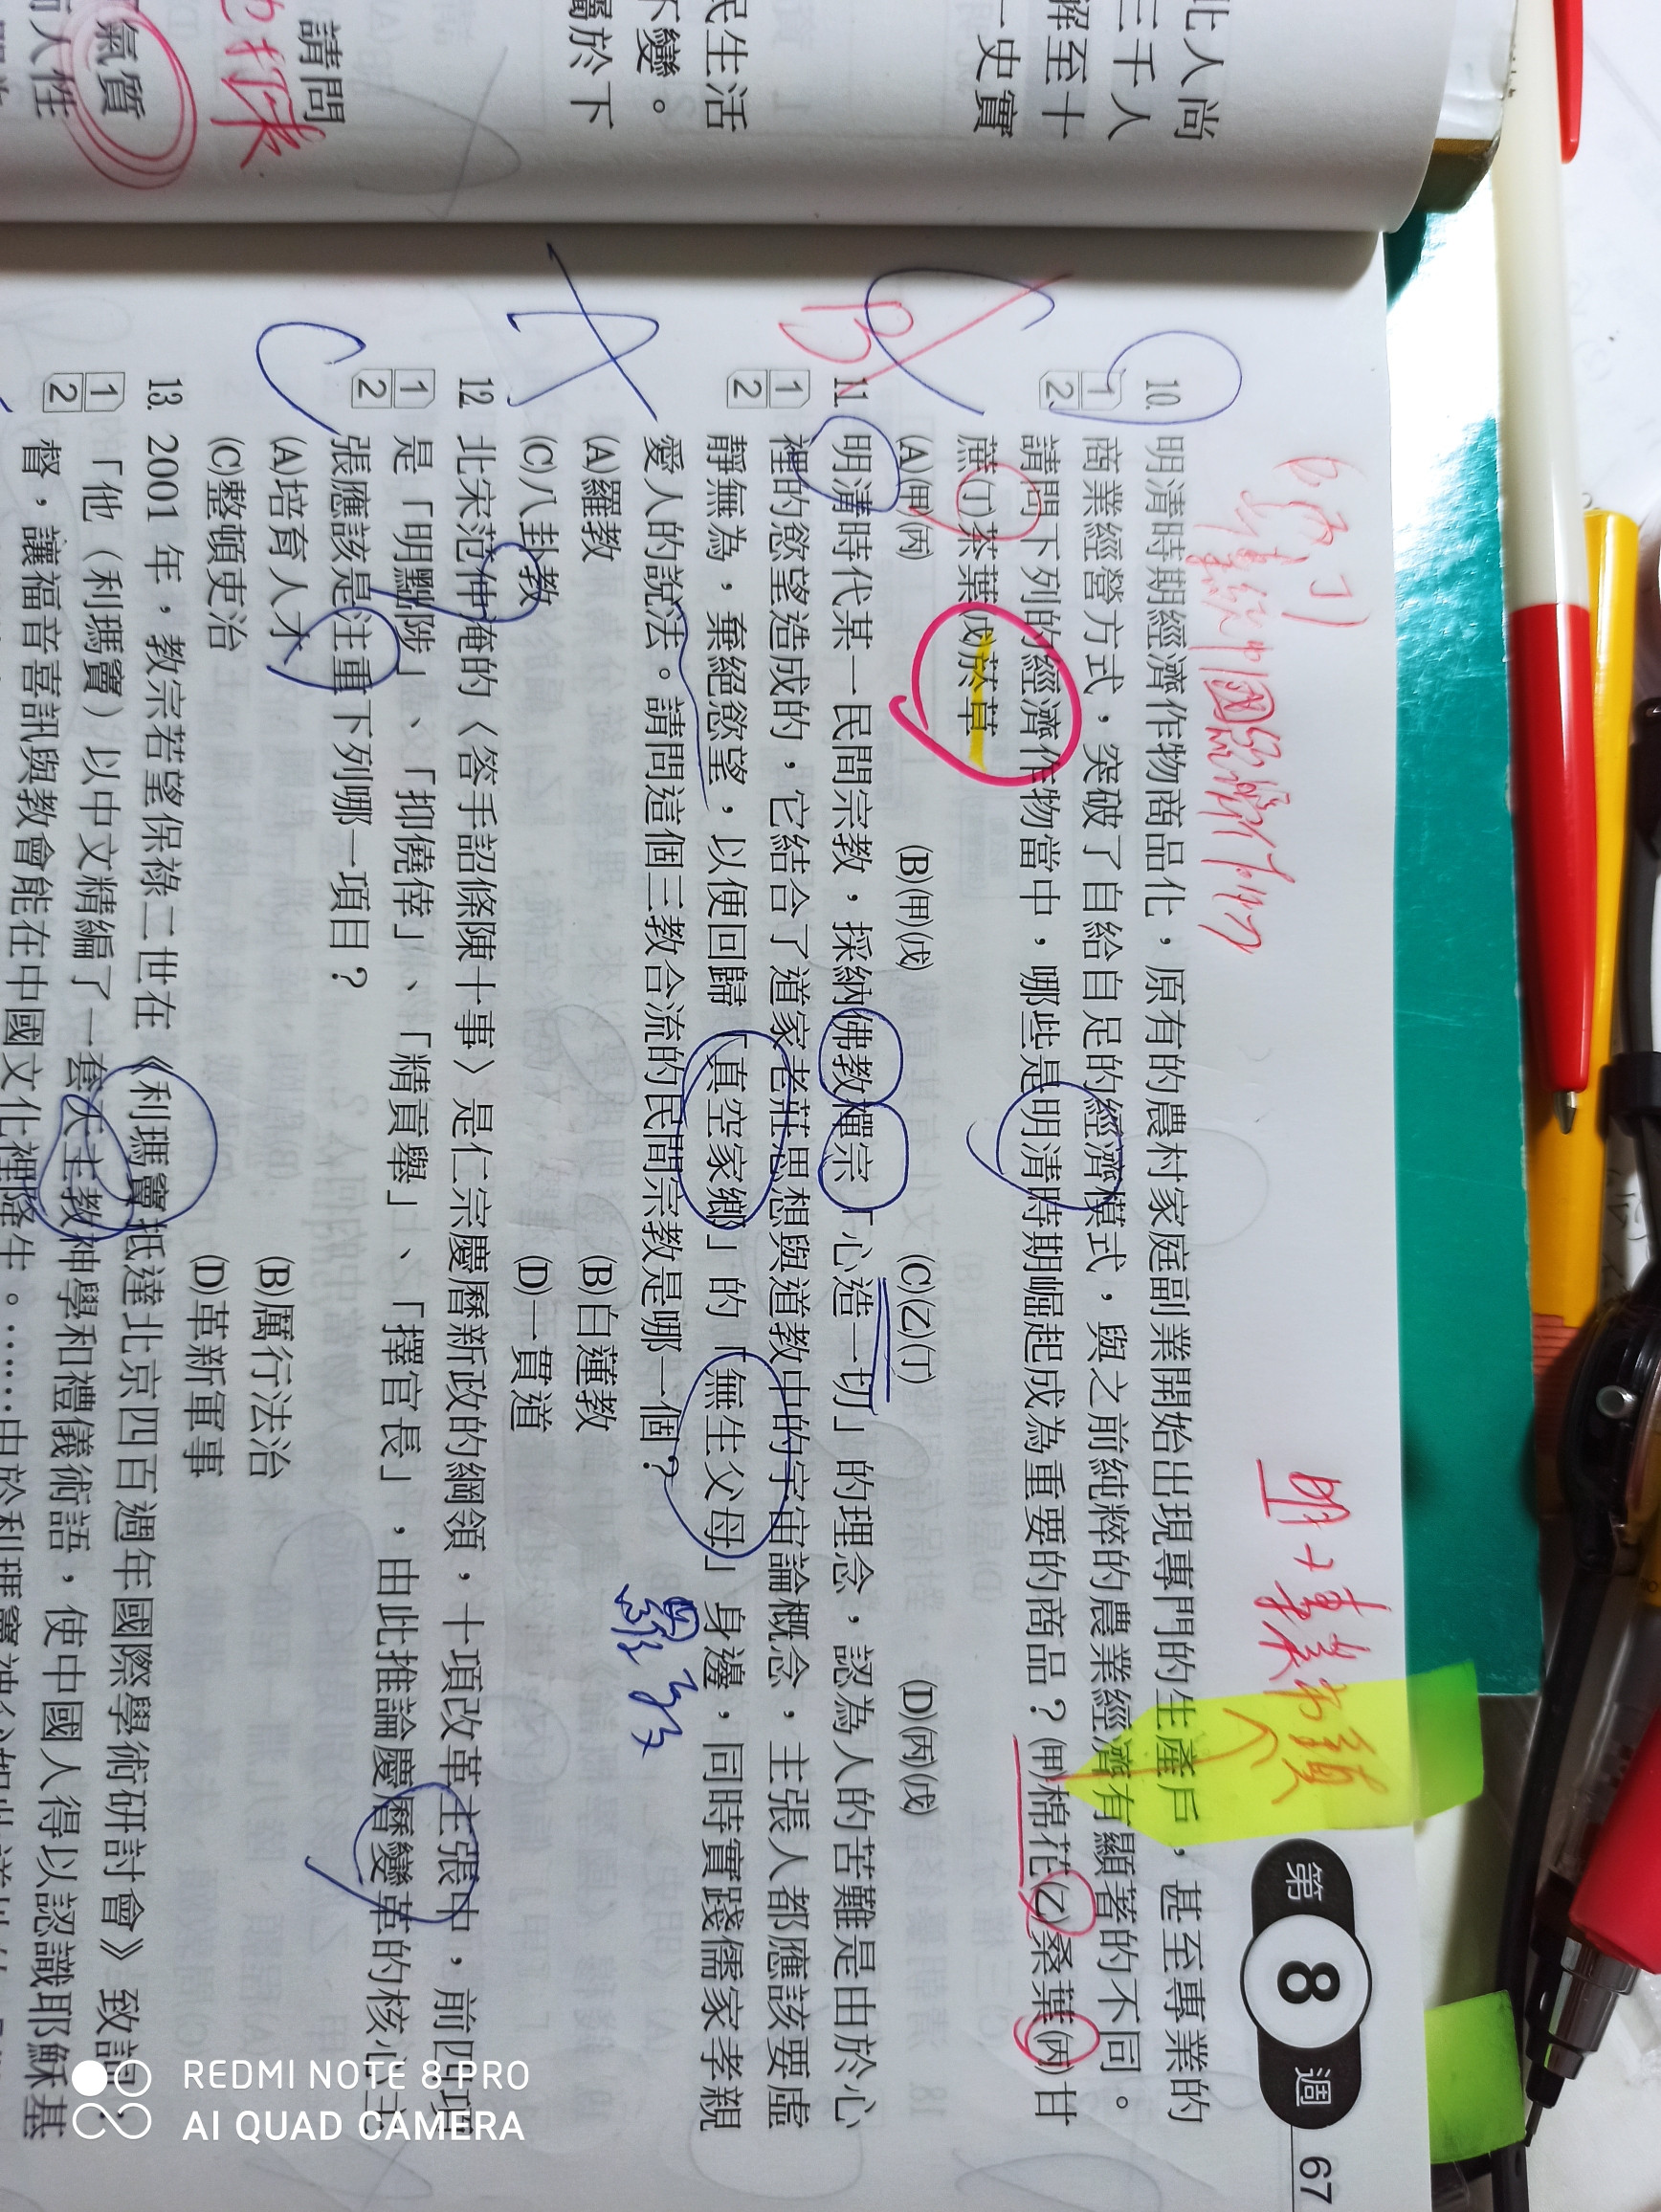 北人尚
三千人
解至十
一史實
民生活
不變。
屬於下
請問
氣質
第8週
67
10. 明清時期經濟作物商品化，原有的農村家庭副業開始出現專門的生產戶，甚至專業的
1 商業經營方式，突破了自給自足的經濟模式，與之前純粹的農業經濟有顯著的不同。
2 請問下列的經濟作物當中，哪些是明清時期崛起成為重要的商品？(甲)棉花(乙)桑葉(丙)甘
蔗(丁)茶葉(戊)菸草
(A)(甲)(丙) (B)(甲)(戊) (C)(乙)(丁) (D)(丙)(戊)
B
11. 明清時代某一民間宗教，採納佛教禪宗「心造一切」的理念，認為人的苦難是由於心
1 裡的慾望造成的，它結合了道家老莊思想與道教中的宇宙論概念，主張人都應該要虛
2 靜無為，棄絕慾望，以便回歸「真空家鄉」的「無生父母」身邊，同時實踐儒家孝親
愛人的說法。請問這個三教合流的民間宗教是哪一個？
(A)羅教 (B)白蓮教
(C)八卦教 (D)一貫道
A
12. 北宋范仲淹的〈答手詔條陳十事〉是仁宗慶曆新政的綱領，十項改革主張中，前四項
1 是「明黜陟」、「抑僥倖」、「精貢舉」、「擇官長」，由此推論慶曆變革的核心主
2 張應該是注重下列哪一項目？
(A)培育人才 (B)厲行法治
(C)整頓吏治 (D)革新軍事
C
13. 2001 年，教宗若望保祿二世在《利瑪竇抵達北京四百週年國際學術研討會》致詞：
1 「他（利瑪竇）以中文精編了一套天主教神學和禮儀術語，使中國人得以認識耶穌基
2 督，讓福音喜訊與教會能在中國文化裡降生。……由於利瑪竇神父
REDMI NOTE 8 PRO
AI QUAD CAMERA